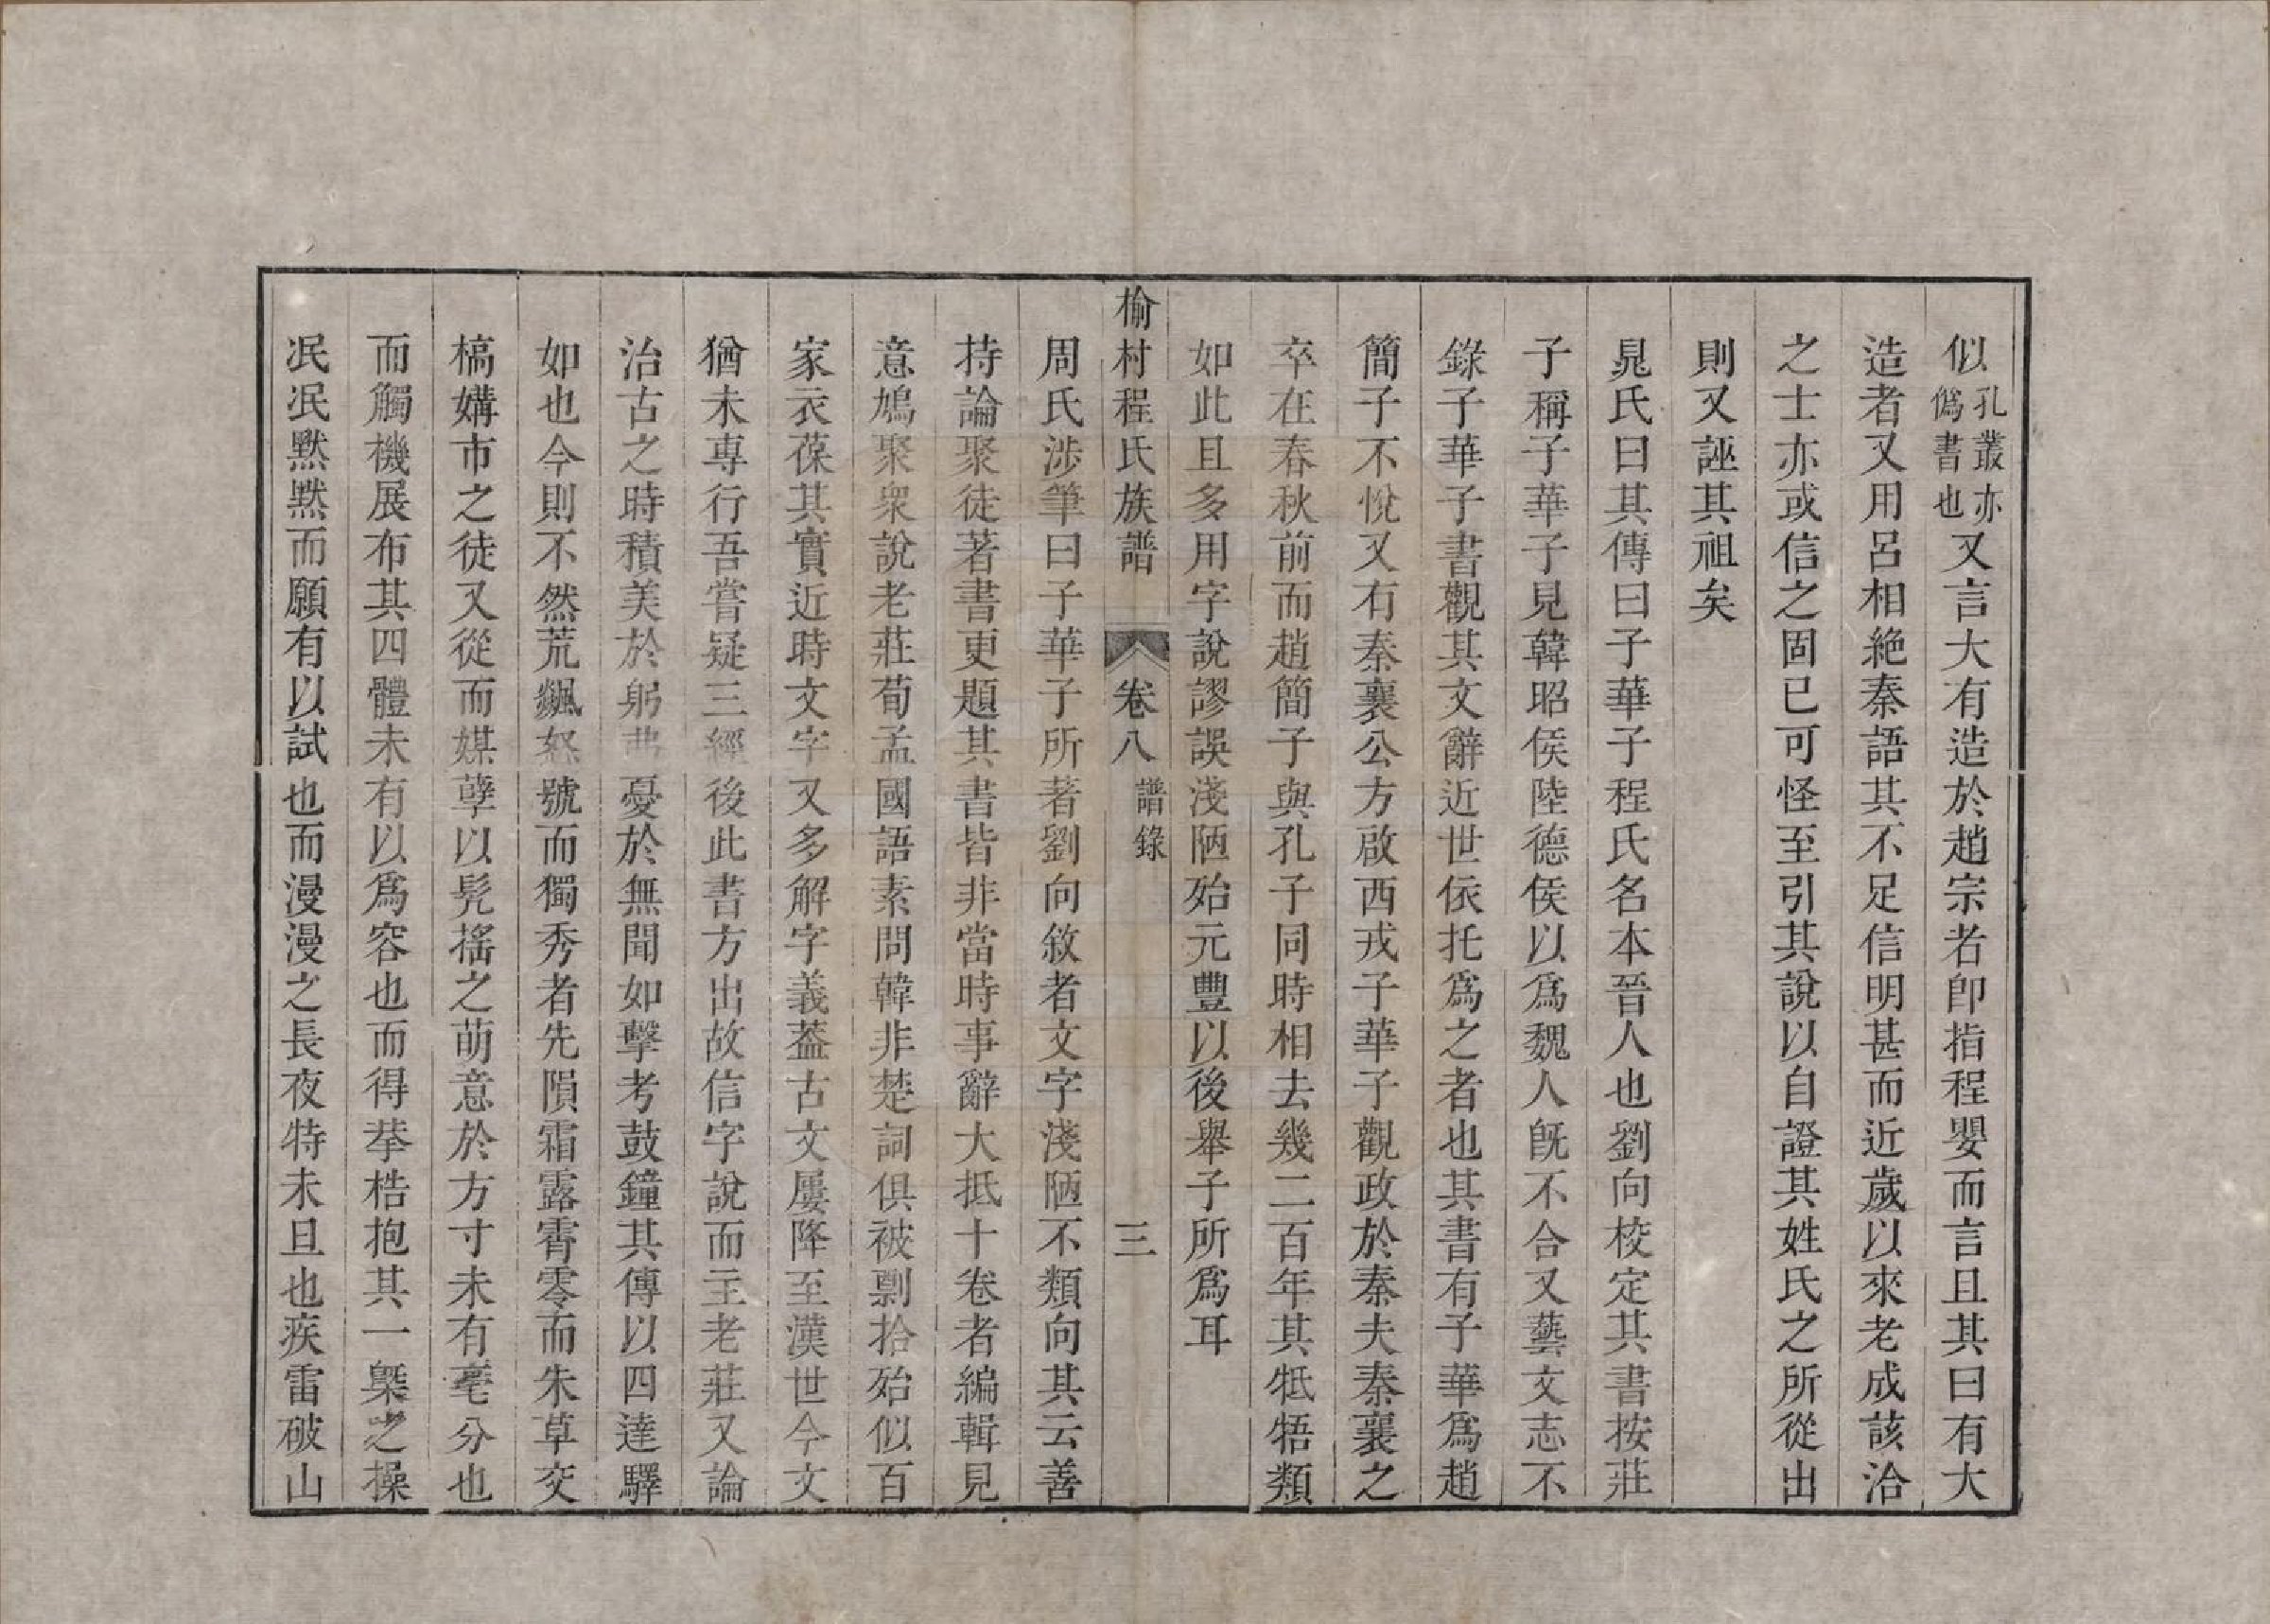 似孔叢亦僞書也又言大有造於趙宗者卽指程嬰而言且其曰有大
造者又用呂相絶秦語其不足信明甚而近歲以來老成該洽
之士亦或信之固已可怪至引其說以自證其姓氏之所從出
則又誣其祖矣
晁氏曰其傳曰子華子程氏名本晉人也劉向校定其書按莊
子稱子華子見韓昭侯陸德侯以爲魏人旣不合又藝文志不
錄子華子書觀其文辭近世依托爲之者也其書有子華爲趙
簡子不悅又有秦襄公方啟西戎子華子觀政於秦夫秦襄之
卒在春秋前而趙簡子與孔子同時相去幾二百年其牴牾類
如此且多用字說謬誤淺陋殆元豐以後舉子所爲耳
榆村程氏族譜 卷八 譜錄 三
周氏涉筆曰子華子所著劉向敘者文字淺陋不類向其云善
持論聚徒著書更題其書皆非當時事辭大抵十卷者編輯見
意鳩聚衆說老莊荀孟國語素問韓非楚詞俱被剽拾殆似百
家衣葆其實近時文字又多解字義葢古文屢降至漢世今文
猶未專行吾嘗疑三經後此書方出故信字說而主老莊又論
治古之時積美於躬弗憂於無聞如擊考鼓鐘其傳以四達驛
如也今則不然荒飊怒號而獨秀者先隕霜露霄零而朱草交
槁媾市之徒又從而媒孽以髡搖之萌意於方寸未有毫分也
而觸機展布其四體未有以爲容也而得拲梏抱其一槩之操
泯泯黙黙而願有以試也而漫漫之長夜特未旦也疾雷破山